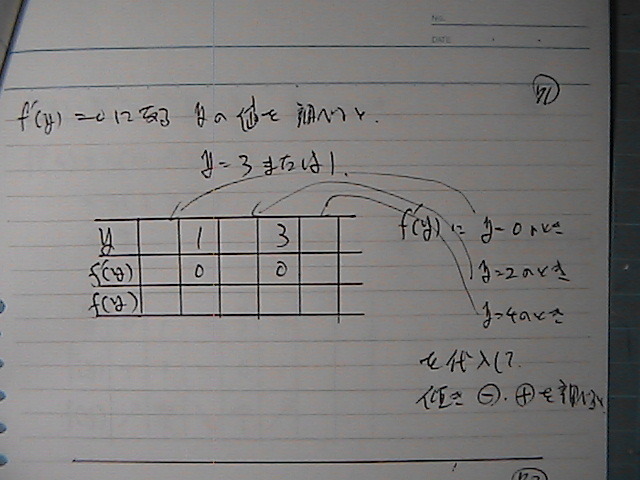 NO.
DATE
f'(y)=0になる yの値を調べると.
y=3または1.
y 1 3
f'(y) 0 0
f(y)
f'(y)に y=0のとき
y=2のとき
y=4のとき
を代入して
値を ⊖.⊕を調べる